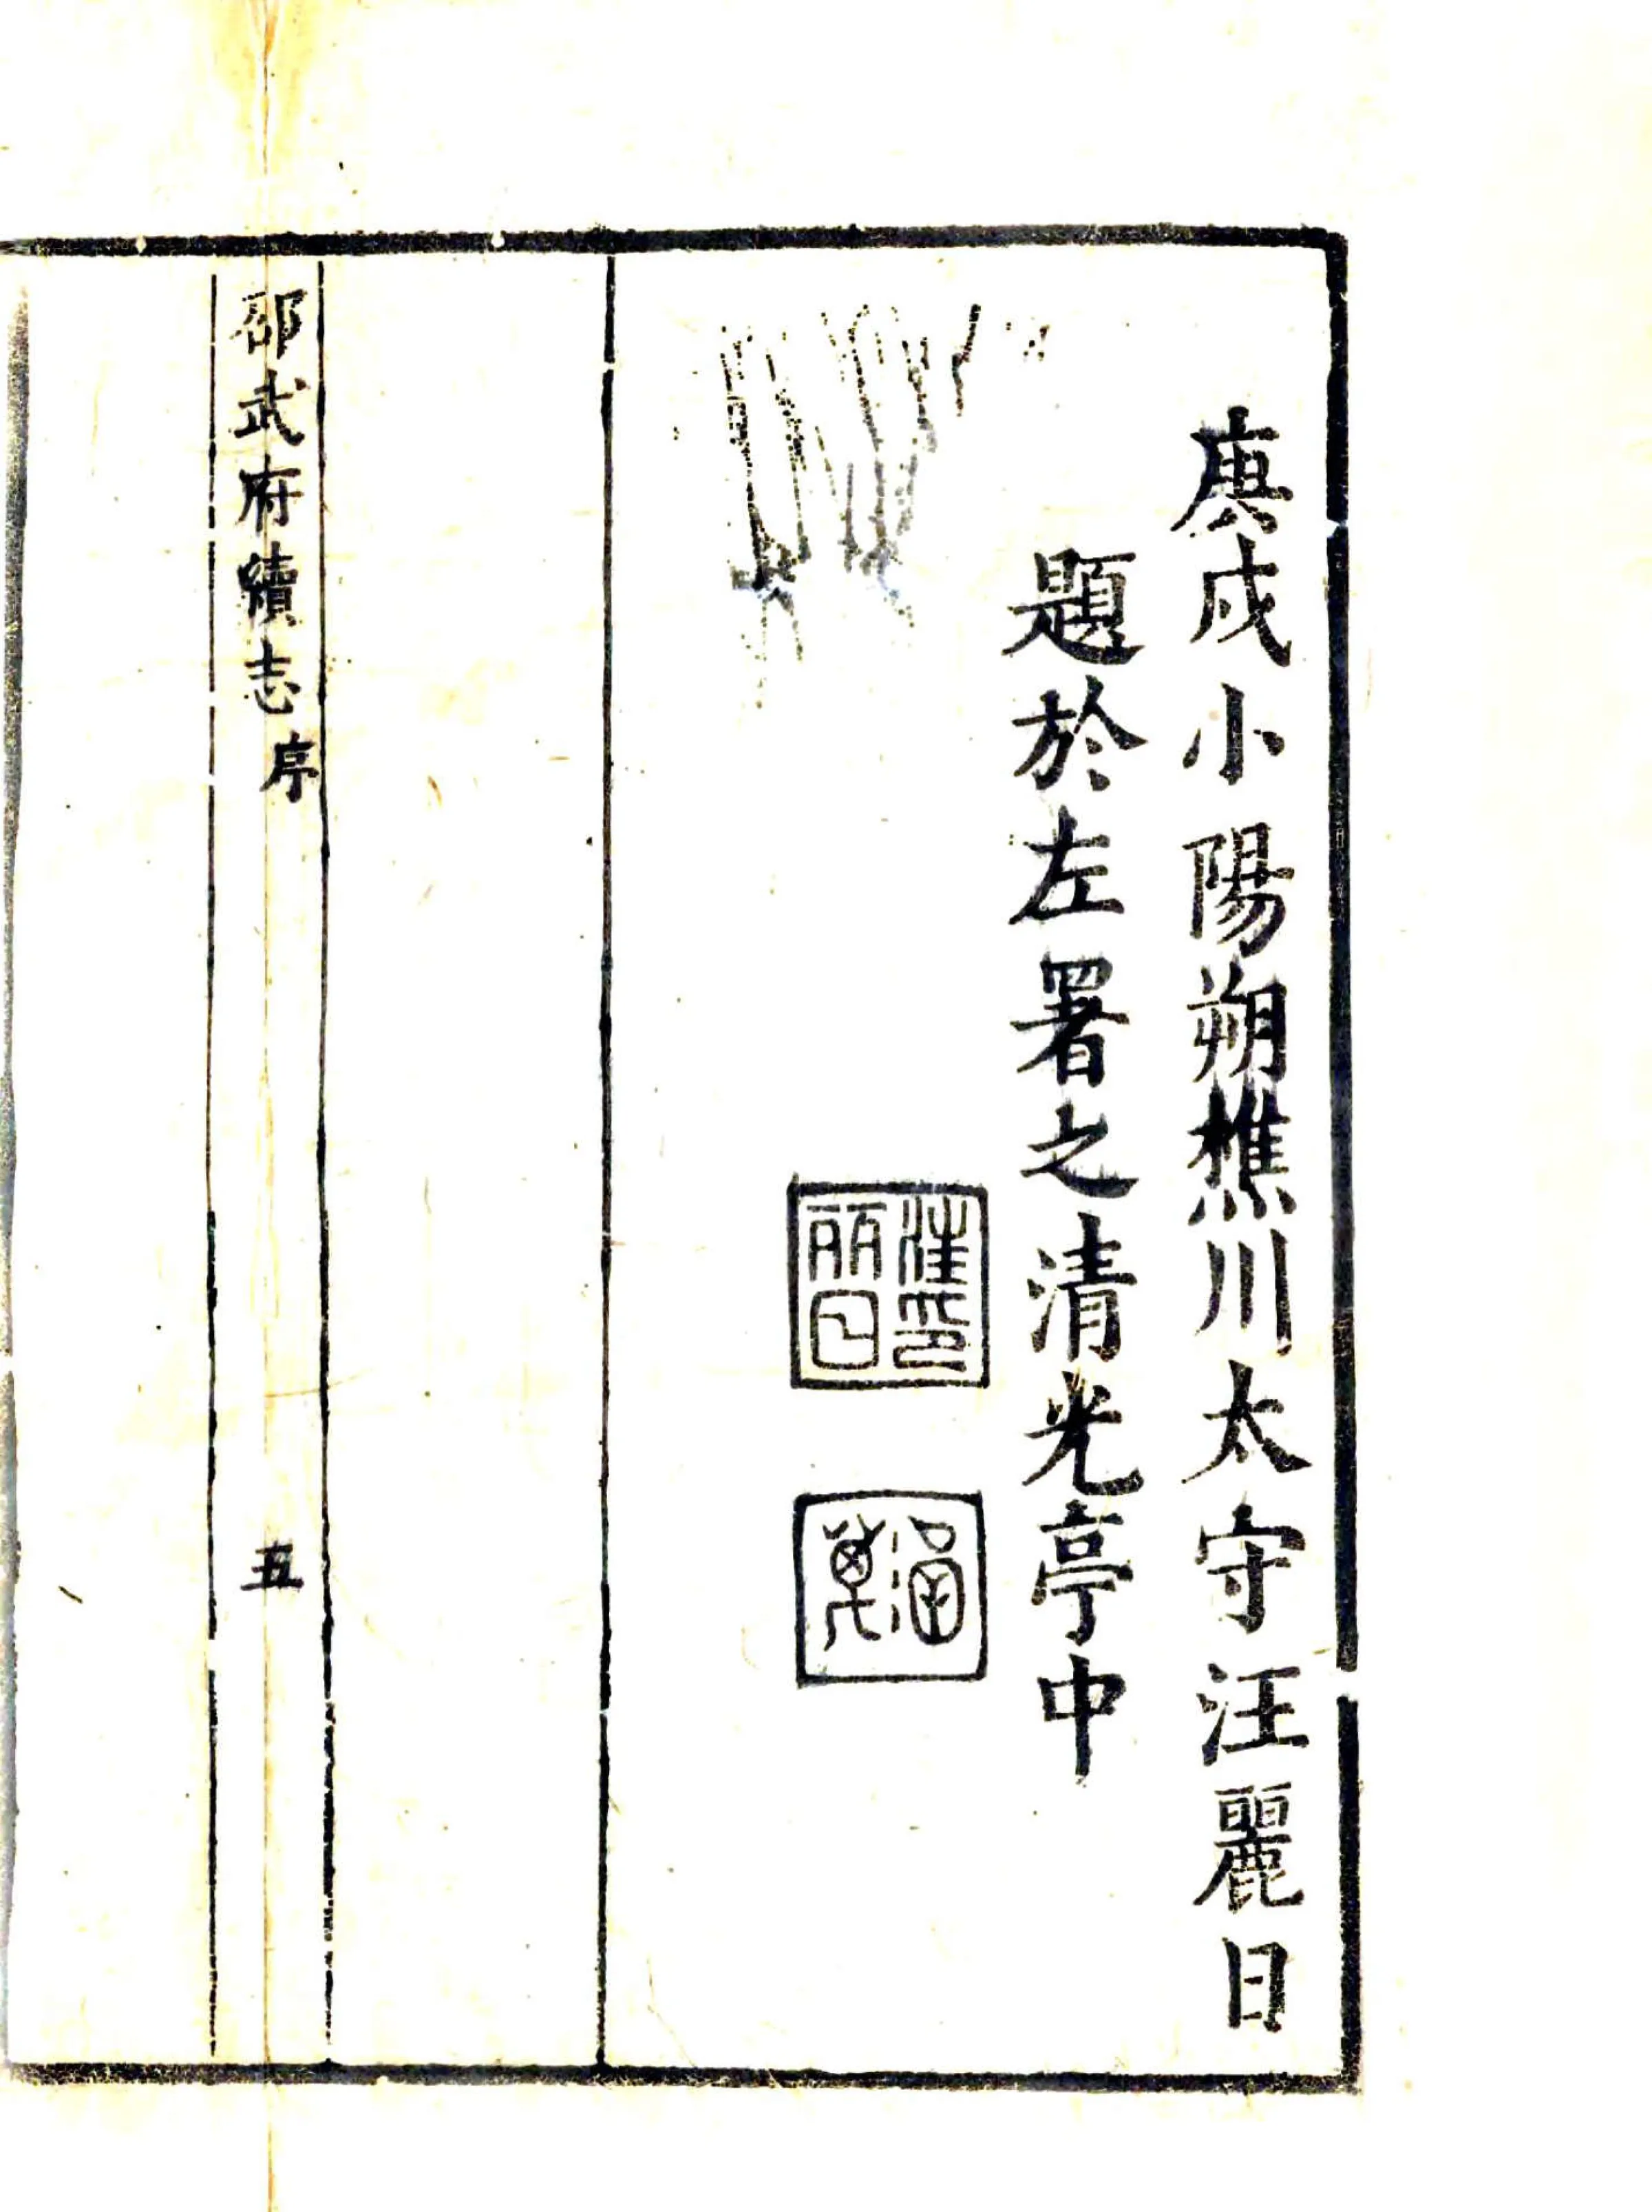 庚戌小陽朔樵川太守汪麗日
題於左署之清光亭中
汪印
丽日
邵武府續志序
五